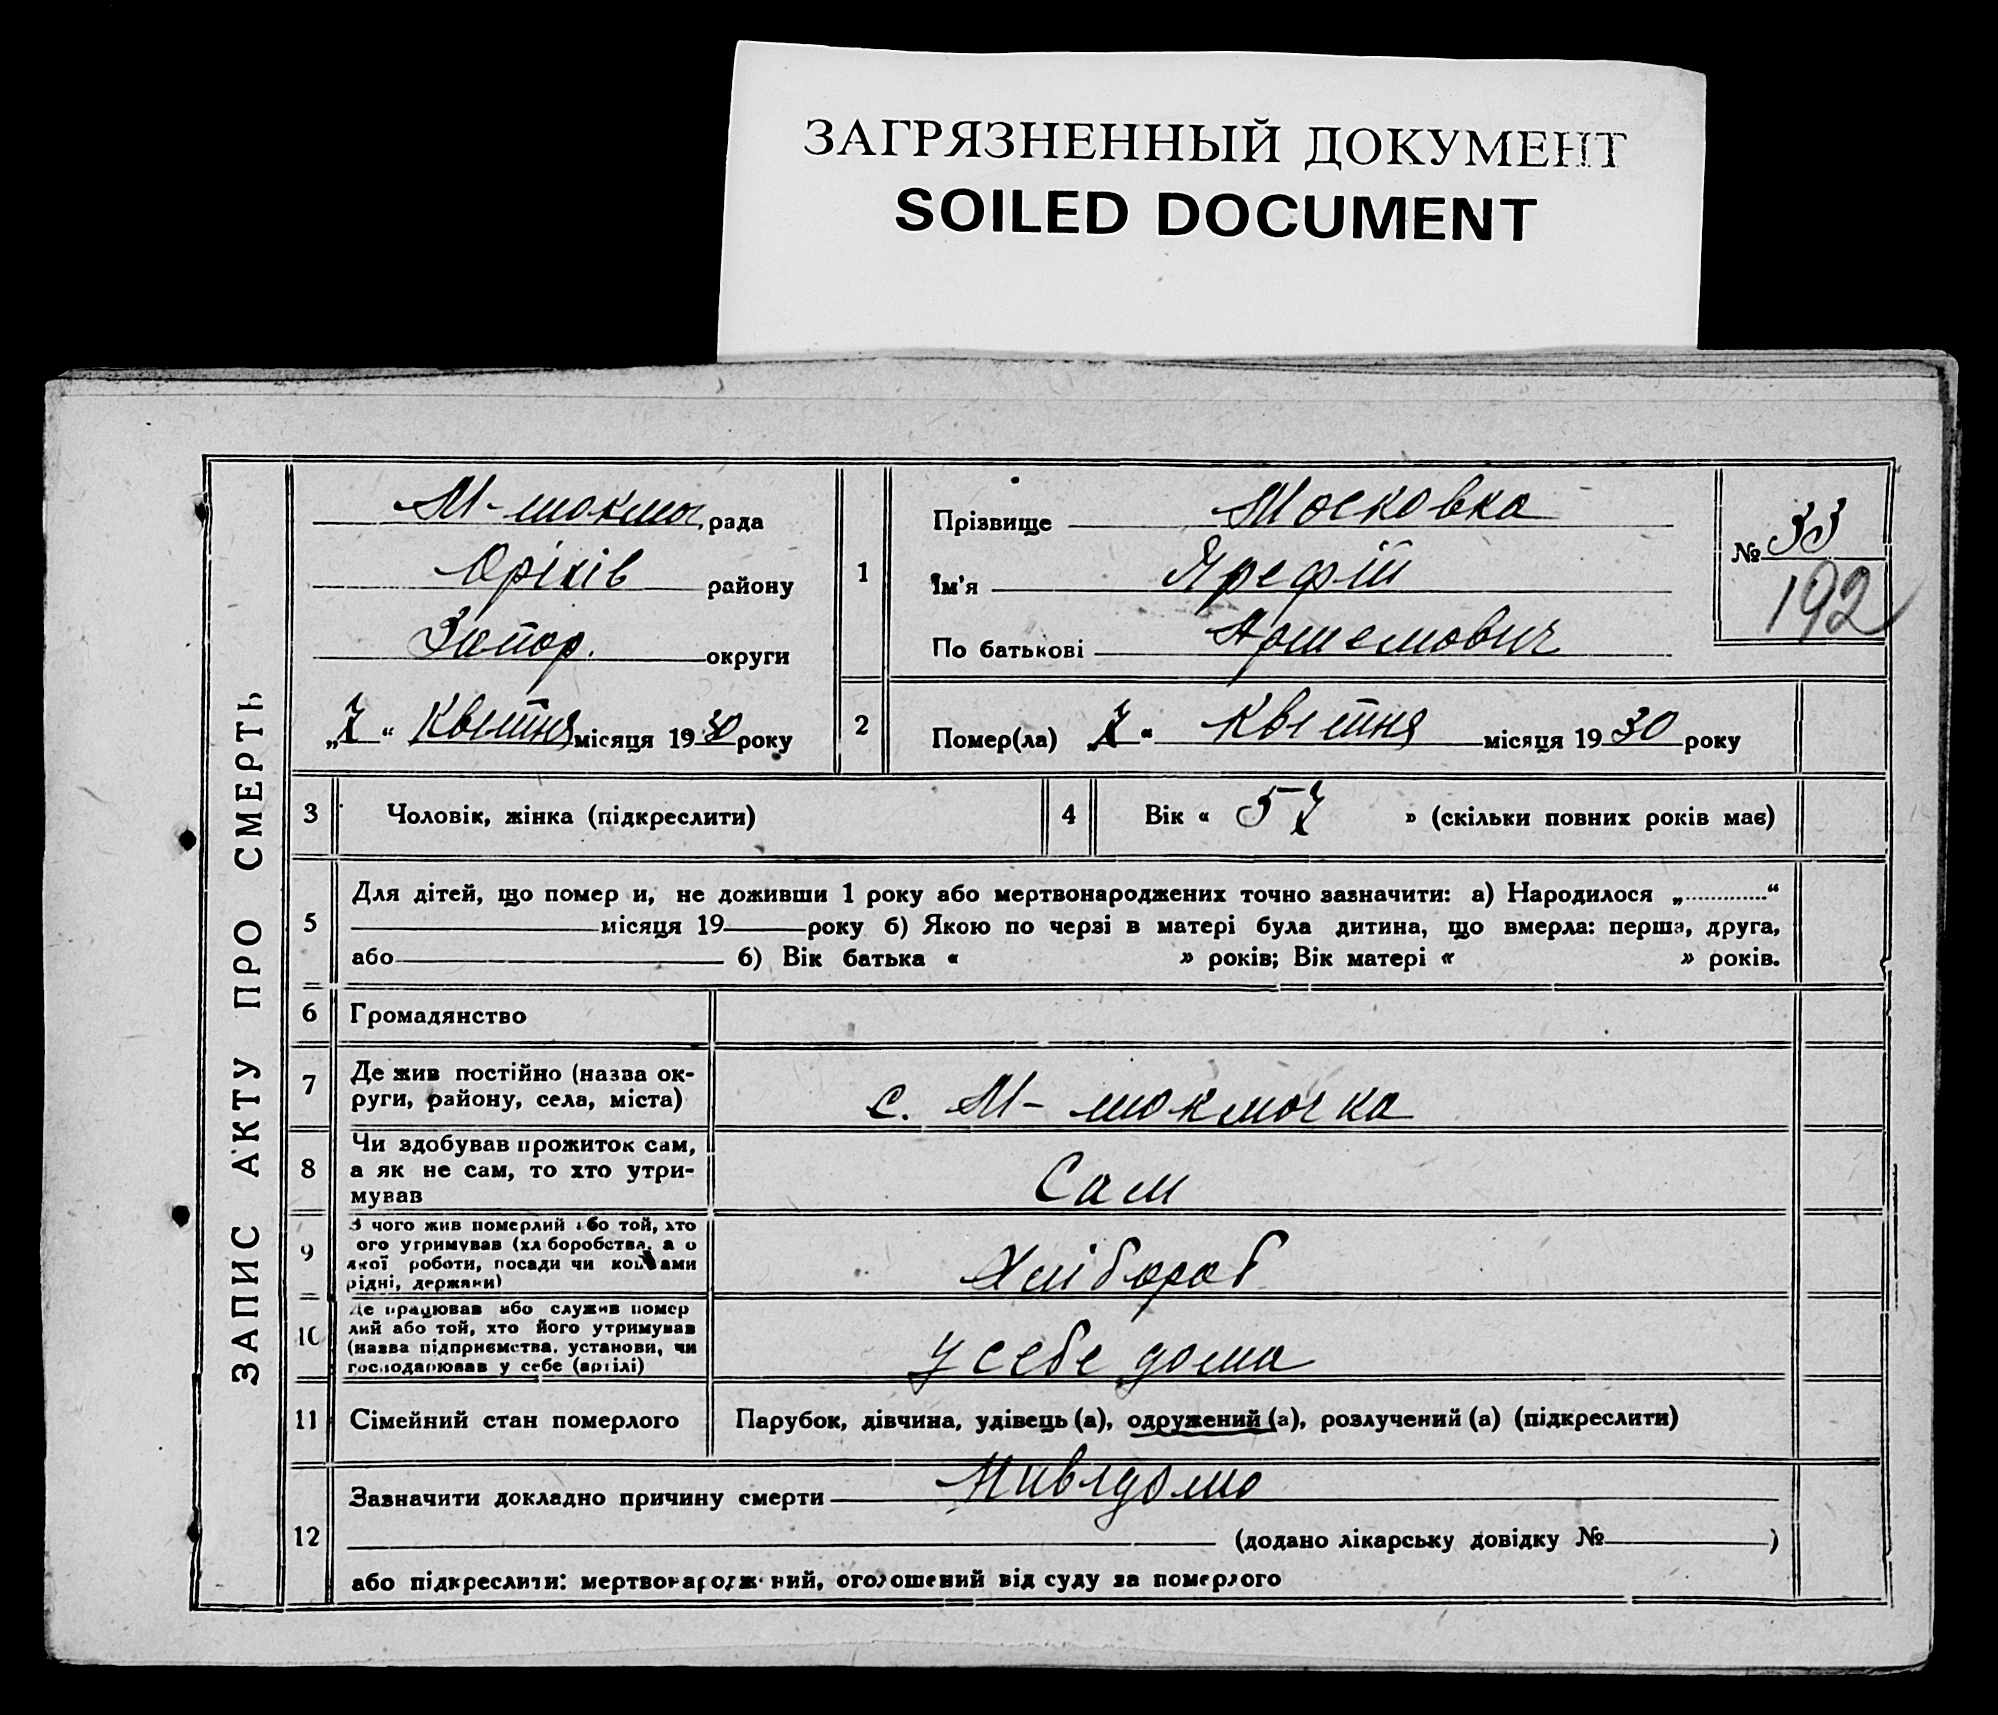 ЗАГРЯЗНЕННЫЙ ДОКУМЕНТ
SOILED DOCUMENT
ЗАПИС АКТУ ПРО СМЕРТЬ
М-токмач. рада
Оріхів району
Запор. округи
„7“ Квітня місяця 1930 року
1
Прізвище Московка
Ім'я Ярефій
По батькові Артемович
№ 33
192
2 Помер(ла) „7“ Квітня місяця 1930 року
3 Чоловік, жінка (підкреслити)
4 Вік « 57 » (скільки повних років має)
5 Для дітей, що помер и, не доживши 1 року або мертвонароджених точно зазначити: а) Народилося „............“
місяця 19 року б) Якою по черзі в матері була дитина, що вмерла: перша, друга,
або б) Вік батька « » років; Вік матері « » років.
6 Громадянство
7 Де жив постійно (назва ок-
руги, району, села, міста)
с. М-токмачка
8 Чи здобував прожиток сам,
а як не сам, то хто утри-
мував
Сам
9 З чого жив померлий або той, хто
ого утримував (хл боробства, а о
якої роботи, посади чи коштами
рідні, держави)
Хлібороб
10 Де працював або служив помер
лий або той, хто його утримував
(назва підприємства, установи, чи
господарював у себе (артілі)
у себе дома
11 Сімейний стан померлого Парубок, дівчина, удівець (а), одружений (а), розлучений (а) (підкреслити)
12 Зазначити докладно причину смерти Нивядомо
(додано лікарську довідку № )
або підкреслити: мертвонароджений, оголошений від суду за померлого